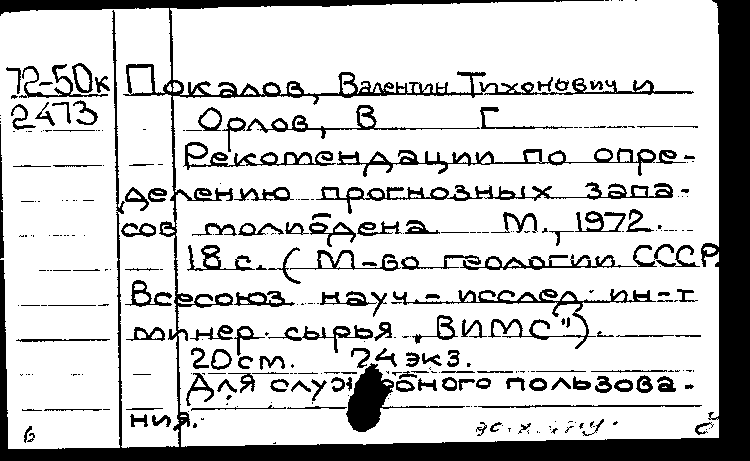 72-50к Покалов, Валентин Тихонович и
2473 Орлов, В Г
Рекомендации по опре-
делению прогнозных запа-
сов молибдена М., 1972.
18 с. (М-во геологии СССР.
Всесоюз науч.-исслед. ин-т
минер. сырья „ВИМС").
20 см. 74 экз.
Для служебного пользова-
ния.
6